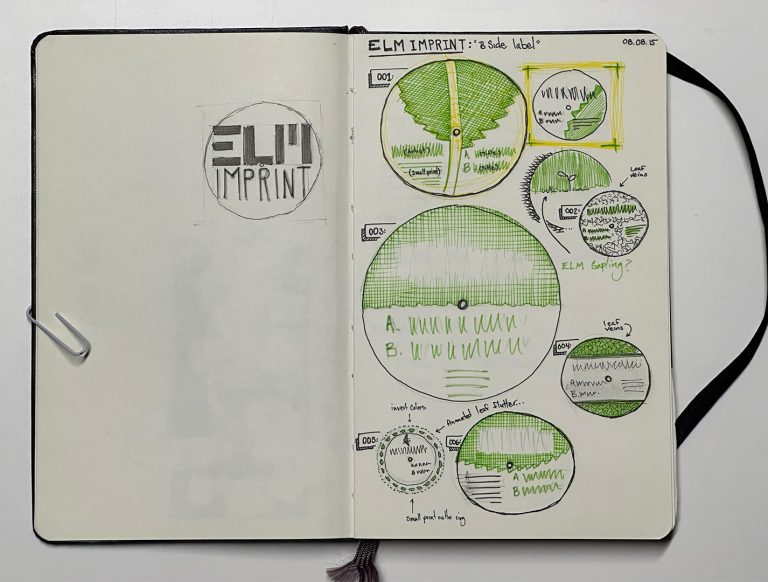 ELM
IMPRINT
ELM IMPRINT: "B Side label"
08.08.15
001:
(artist)
(small print)
A
B
A
B
002:
Leaf
veins
A
B
ELM Sapling?
003:
A.
B.
004:
leaf
veins
A
B
invert colors
Animated leaf flutter...
005:
A
B
small print outter ring
006:
A
B